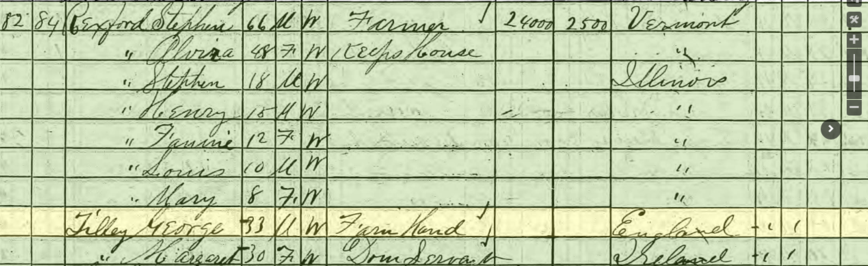 82 84 Rexford Stephen 66 M W Farmer 1 24000 2500 Vermont
" Elvira 48 F W Keeps house "
" Stephen 18 M W Illinois
" Henry 15 M W "
" Fannie 12 F W "
" Louis 10 M W "
" Mary 8 F W "
Tilley George 33 M W Farm Hand 1 England 1 1
" Margaret 30 F W Dom Servant Ireland 1 1